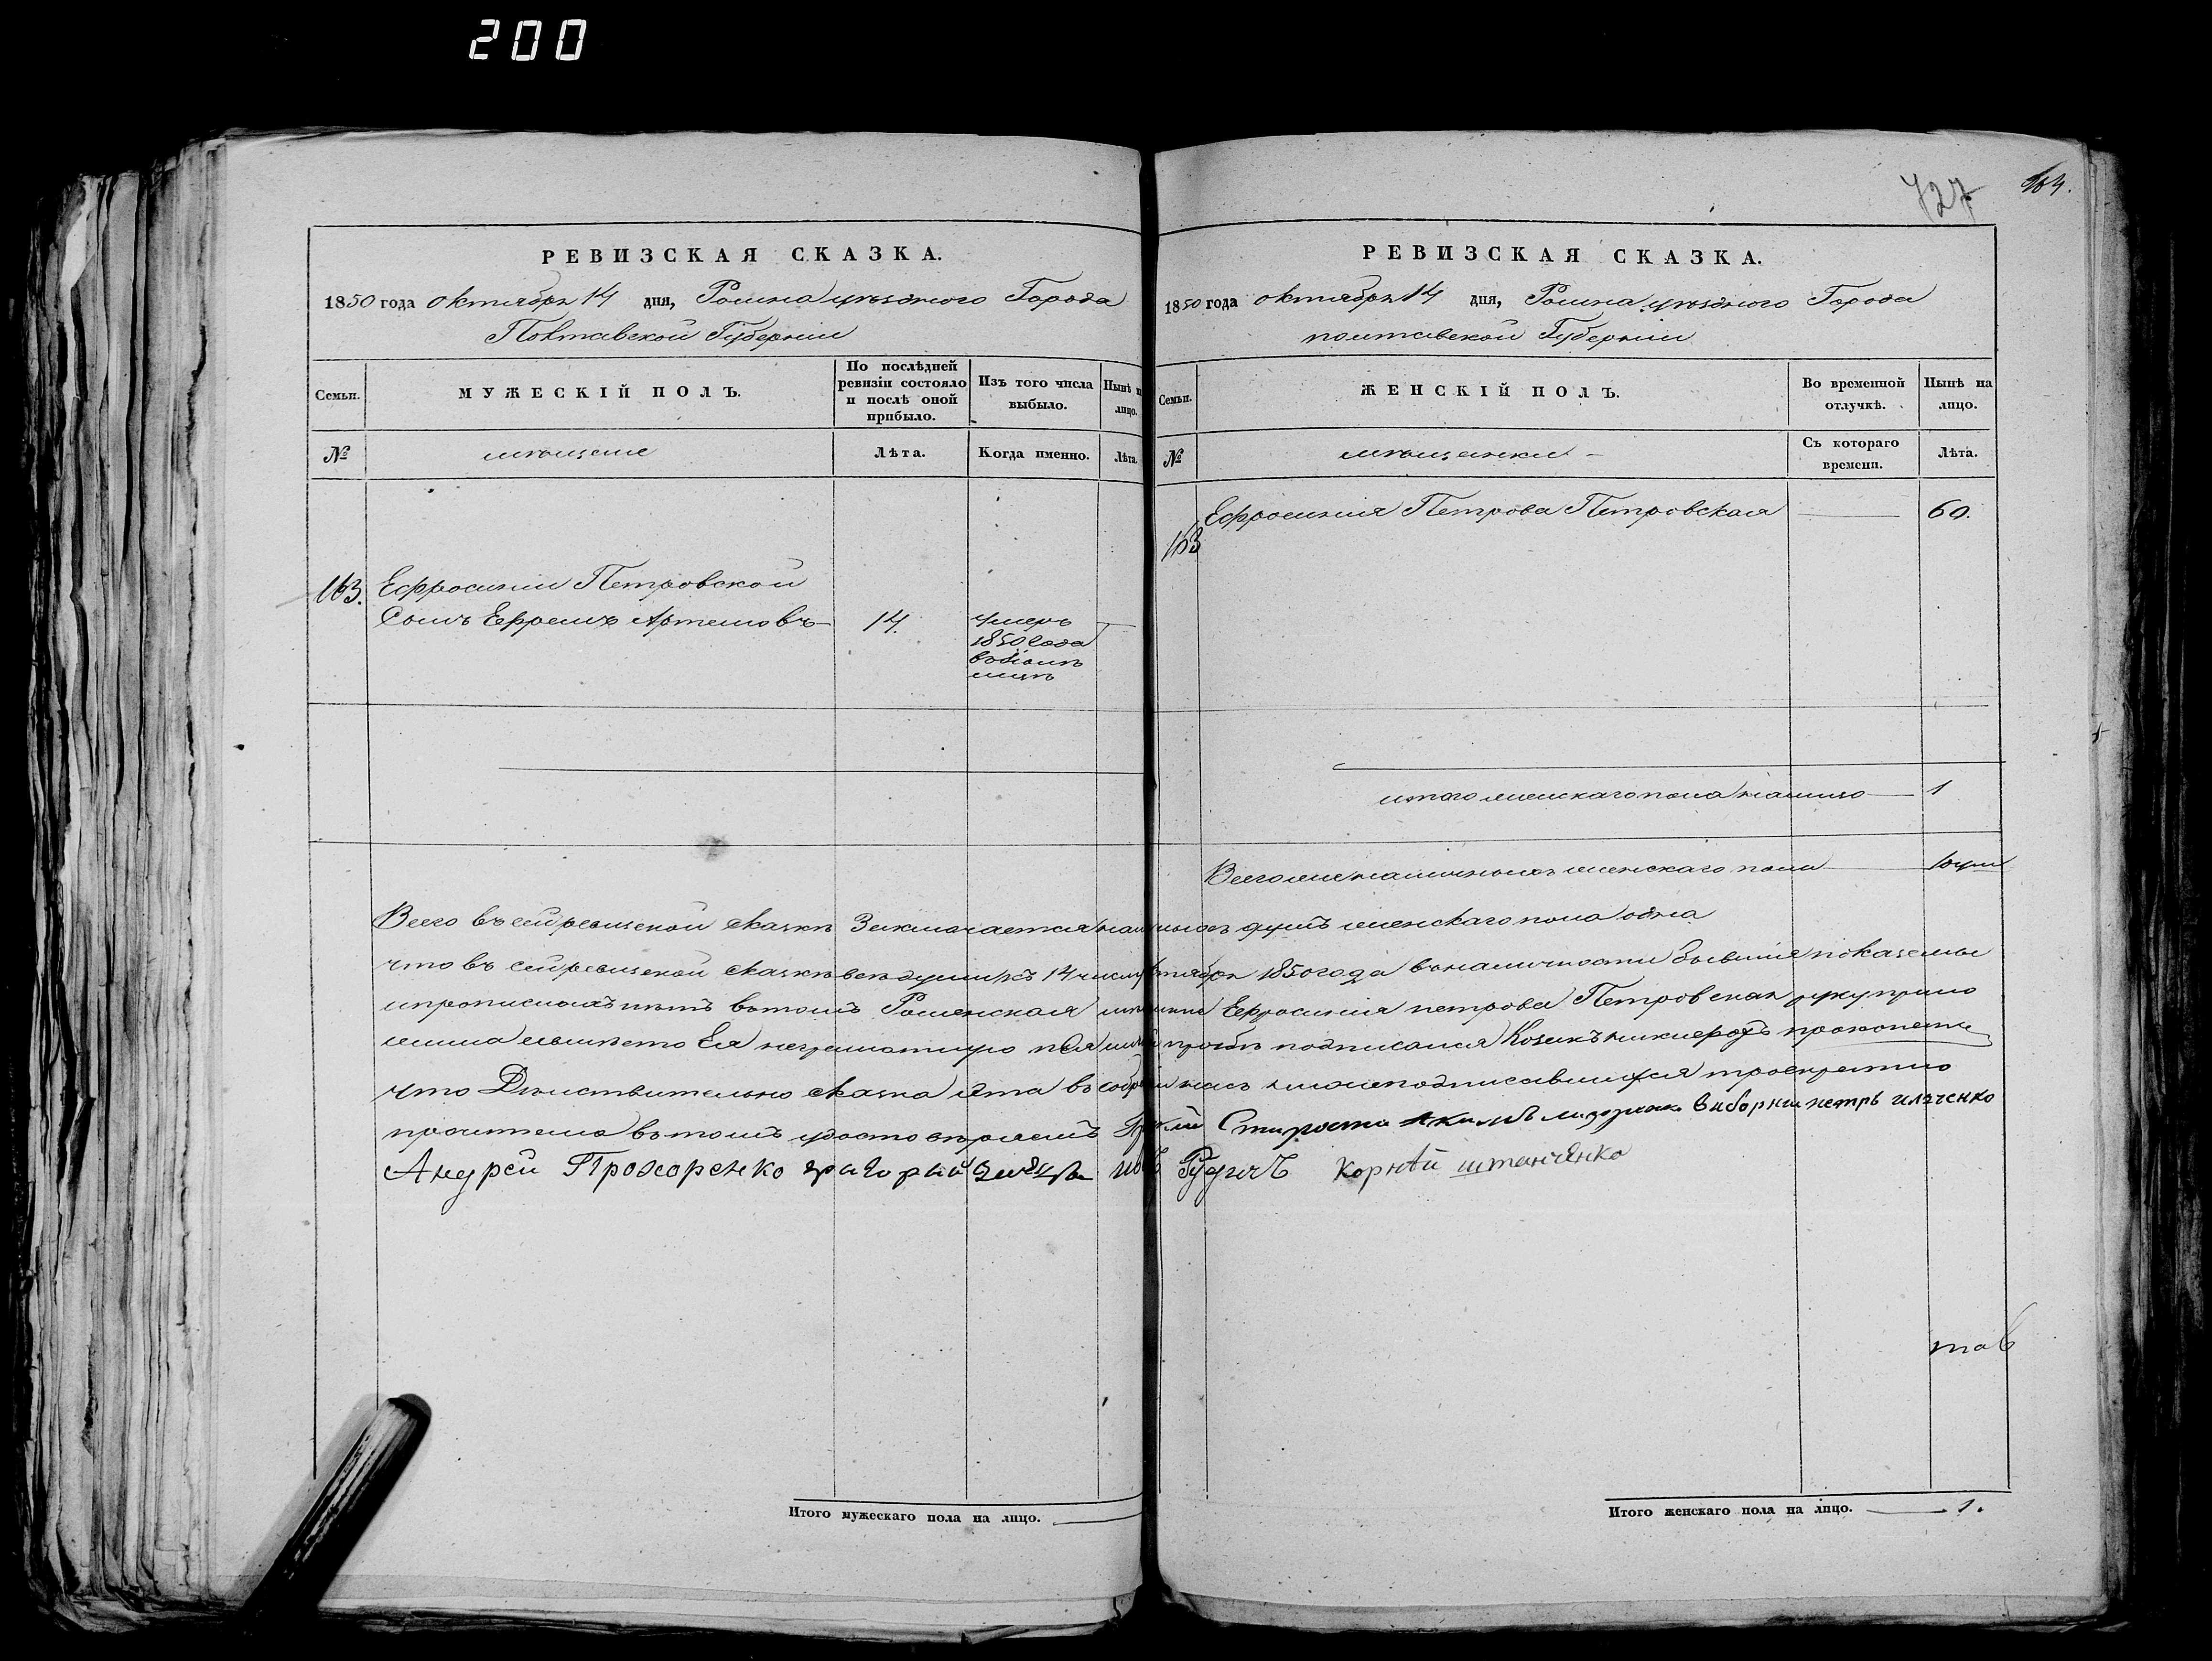 200
727
164.
РЕВИЗСКАЯ СКАЗКА.
1850 года октября 14 дня, Ромна уѣзднаго Города
Полтавской Губерніи
Семьи.
МУЖЕСКІЙ ПОЛЪ.
По послѣдней ревизіи состояло и послѣ оной прибыло.
Изъ того числа выбыло.
Нынѣ на лицо.
№
мѣщане
Лѣта.
Когда именно.
Лѣта.
163.
Ефросиніи Петровской
Сынъ Ефремъ Артемовъ
14.
умеръ
1850 года
РЕВИЗСКАЯ СКАЗКА.
1850 года октября 14 дня, Ромна уѣзднаго Города
полтавской Губерніи
Семьи.
ЖЕНСКІЙ ПОЛЪ.
Во временной отлучкѣ.
Нынѣ на лицо.
№
мѣщанки
Съ котораго времени.
Лѣта.
163
Ефросинія Петрова Петровская
60.
итого женскаго пола налицо 1
Всего женскаго пола
Всего въ сей ревизской сказкѣ Заключается наличныхъ душъ женскаго пола одна
что въ сей ревизской сказкѣ всѣ души къ 14 числу октября 1850 года въ наличности бывшія показаны
и прописныхъ нѣтъ въ томъ Роменская мѣщанка Ефросинія петрова Петровская руку прило
жила а вмѣсто Ея неграмотную по Ея прозбѣ подписался Козакъ
что Дѣиствительно сказка эта въ собраніи насъ нижеподписавшихся троекратно
прочитана въ томъ удостовѣряемъ Староста Якимъ виборни петръ иляченко
Андрей Прохоренко григорий Рудичъ корнѣй штанченко
Итого мужескаго пола на лицо.
Итого женскаго пола на лицо. 1.